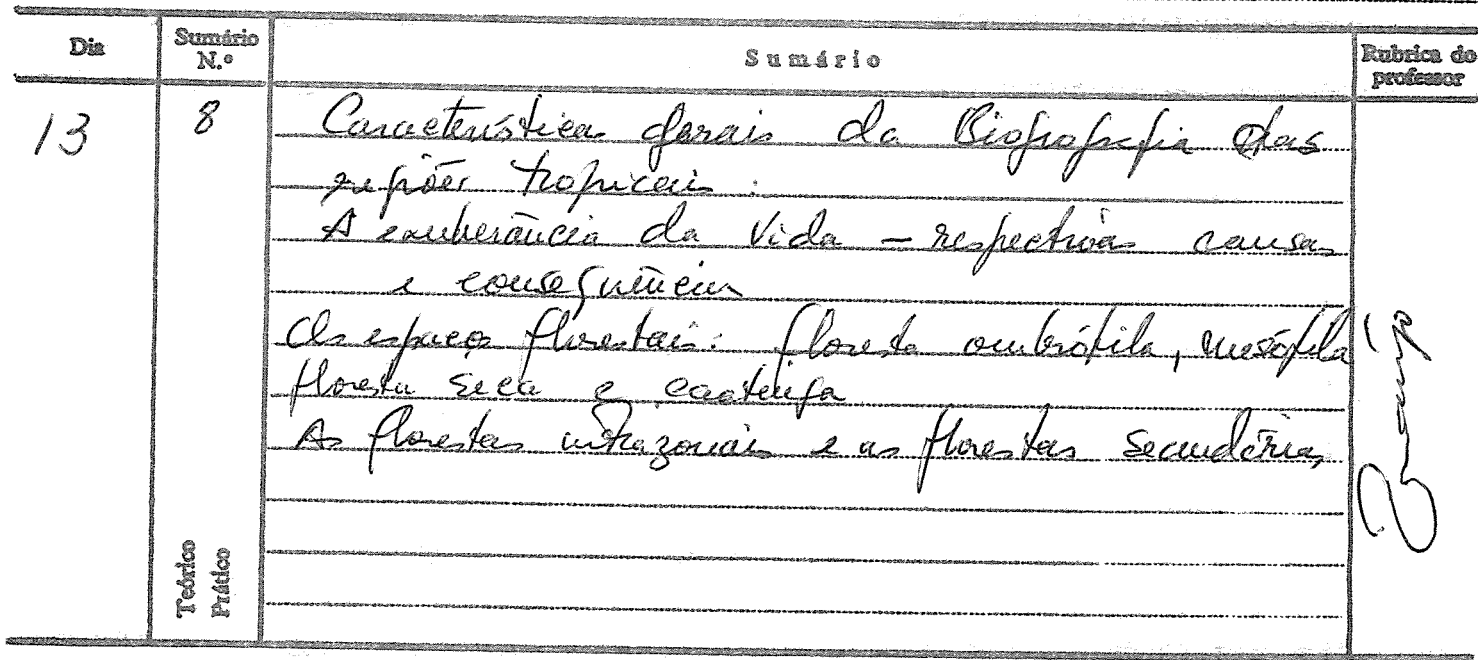 Dia
Sumário N.º
Sumário
Rubrica do professor
13
8
Características gerais da Biogeografia das
regiões tropicais:
A exuberância da Vida – respectivas causas
e consequências
Os espaços florestais: floresta ombrófila, mesófila
floresta seca e caatinga
As florestas intrazonais e as florestas secundárias
Teórico
Prático